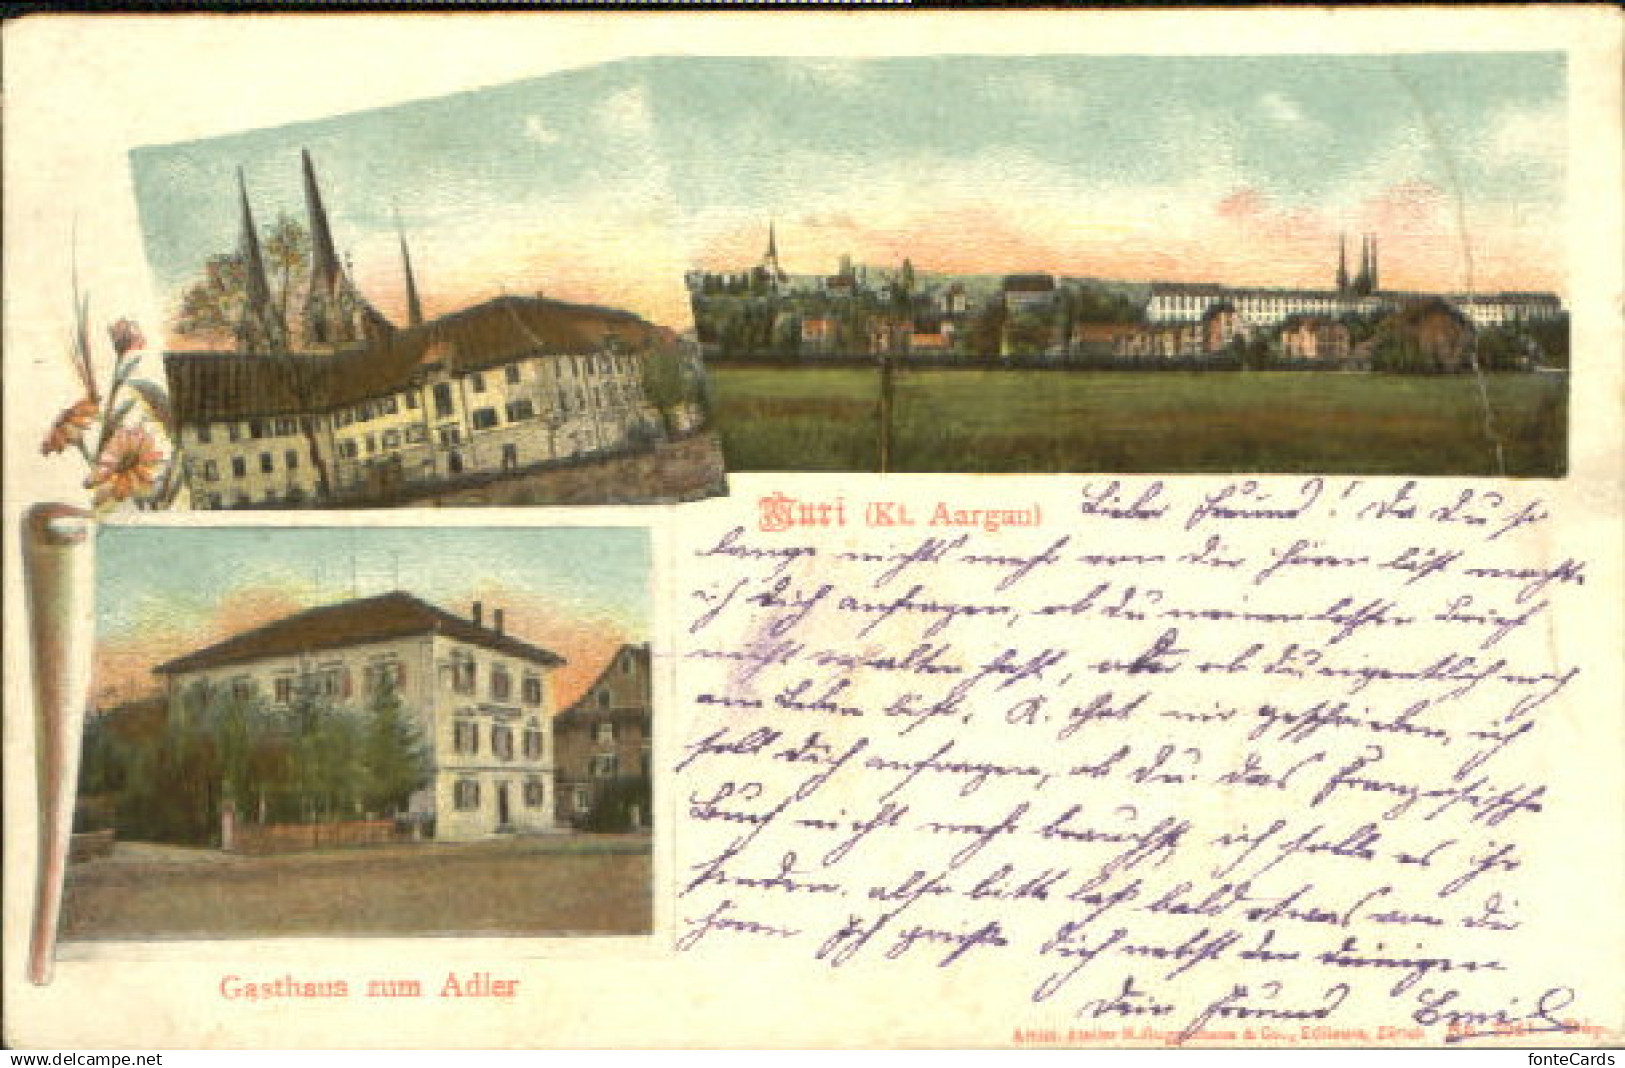 Muri (Kt. Aargau)
Lieber Freund! Da Du so
lange nichts mehr von dir hören läßt möchte
ich dich anfragen, ob du meinen letzten Brief
nicht erhalten hast, oder ob du eigentlich noch
am Leben bist. K. hat mir geschrieben, ich
soll dich anfragen, ob du das Französische
Buch nicht mehr brauchst, ich solle es ihr
senden. also bitte laß bald etwas von dir
hören Ich grüße dich nebst den deinigen
Dein Freund Emil
Gasthaus zum Adler
Artist. Atelier H. Guggenheim & Co., Editeurs, Zürich No. Dép.
fonteCards